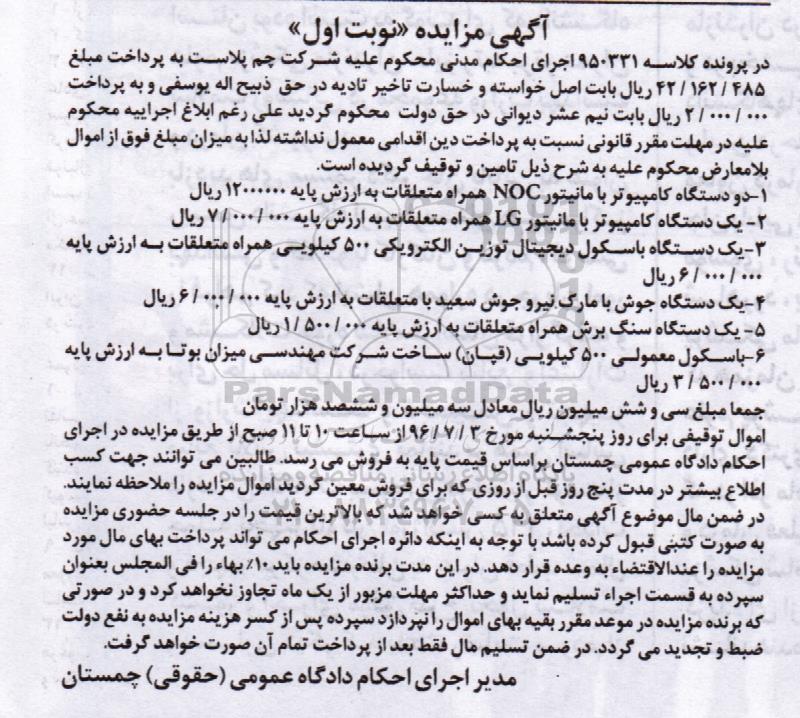 آگهی مزایده «نوبت اول»
در پرونده کلاسه ۹۵۰۳۳۱ اجرای احکام مدنی محکوم علیه شرکت چم پلاست به پرداخت مبلغ
۴۲/۱۶۲/۴۸۵ ریال بابت اصل خواسته و خسارت تاخیر تادیه در حق ذبیح اله یوسفی و به پرداخت
۲/۰۰۰/۰۰۰ ریال بابت نیم عشر دیوانی در حق دولت محکوم گردید علی رغم ابلاغ اجراییه محکوم
علیه در مهلت مقرر قانونی نسبت به پرداخت دین اقدامی معمول نداشته لذا به میزان مبلغ فوق از اموال
بلامعارض محکوم علیه به شرح ذیل تامین و توقیف گردیده است.
۱-دو دستگاه کامپیوتر با مانیتور NOC همراه متعلقات به ارزش پایه ۱۲۰۰۰۰۰۰ ریال
۲- یک دستگاه کامپیوتر با مانیتور LG همراه متعلقات به ارزش پایه ۷/۰۰۰/۰۰۰ ریال
۳-یک دستگاه باسکول دیجیتال توزین الکترویکی ۵۰۰ کیلویی همراه متعلقات به ارزش پایه
۶/۰۰۰/۰۰۰ ریال
۴-یک دستگاه جوش با مارک نیرو جوش سعید با متعلقات به ارزش پایه ۶/۰۰۰/۰۰۰ ریال
۵- یک دستگاه سنگ برش همراه متعلقات به ارزش پایه ۱/۵۰۰/۰۰۰ ریال
۶-باسکول معمولی ۵۰۰ کیلویی (قپان) ساخت شرکت مهندسی میزان بوتا به ارزش پایه
۳/۵۰۰/۰۰۰ ریال
ParsNamadData
جمعا مبلغ سی و شش میلیون ریال معادل سه میلیون و ششصد هزار تومان
اموال توقیفی برای روز پنجشنبه مورخ ۹۶/۷/۳ از ساعت ۱۰ تا ۱۱ صبح از طریق مزایده در اجرای
احکام دادگاه عمومی چمستان براساس قیمت پایه به فروش می رسد. طالبین می توانند جهت کسب
اطلاع بیشتر در مدت پنج روز قبل از روزی که برای فروش معین گردید اموال مزایده را ملاحظه نمایند.
در ضمن مال موضوع آگهی متعلق به کسی خواهد شد که بالاترین قیمت را در جلسه حضوری مزایده
به صورت کتبی قبول کرده باشد با توجه به اینکه دائره اجرای احکام می تواند پرداخت بهای مال مورد
مزایده را عندالاقتضاء به وعده قرار دهد. در این مدت برنده مزایده باید ۱۰٪ بهاء را فی المجلس بعنوان
سپرده به قسمت اجراء تسلیم نماید و حداکثر مهلت مزبور از یک ماه تجاوز نخواهد کرد و در صورتی
که برنده مزایده در موعد مقرر بقیه بهای اموال را نپردازد سپرده پس از کسر هزینه مزایده به نفع دولت
ضبط و تجدید می گردد. در ضمن تسلیم مال فقط بعد از پرداخت تمام آن صورت خواهد گرفت.
مدیر اجرای احکام دادگاه عمومی (حقوقی) چمستان